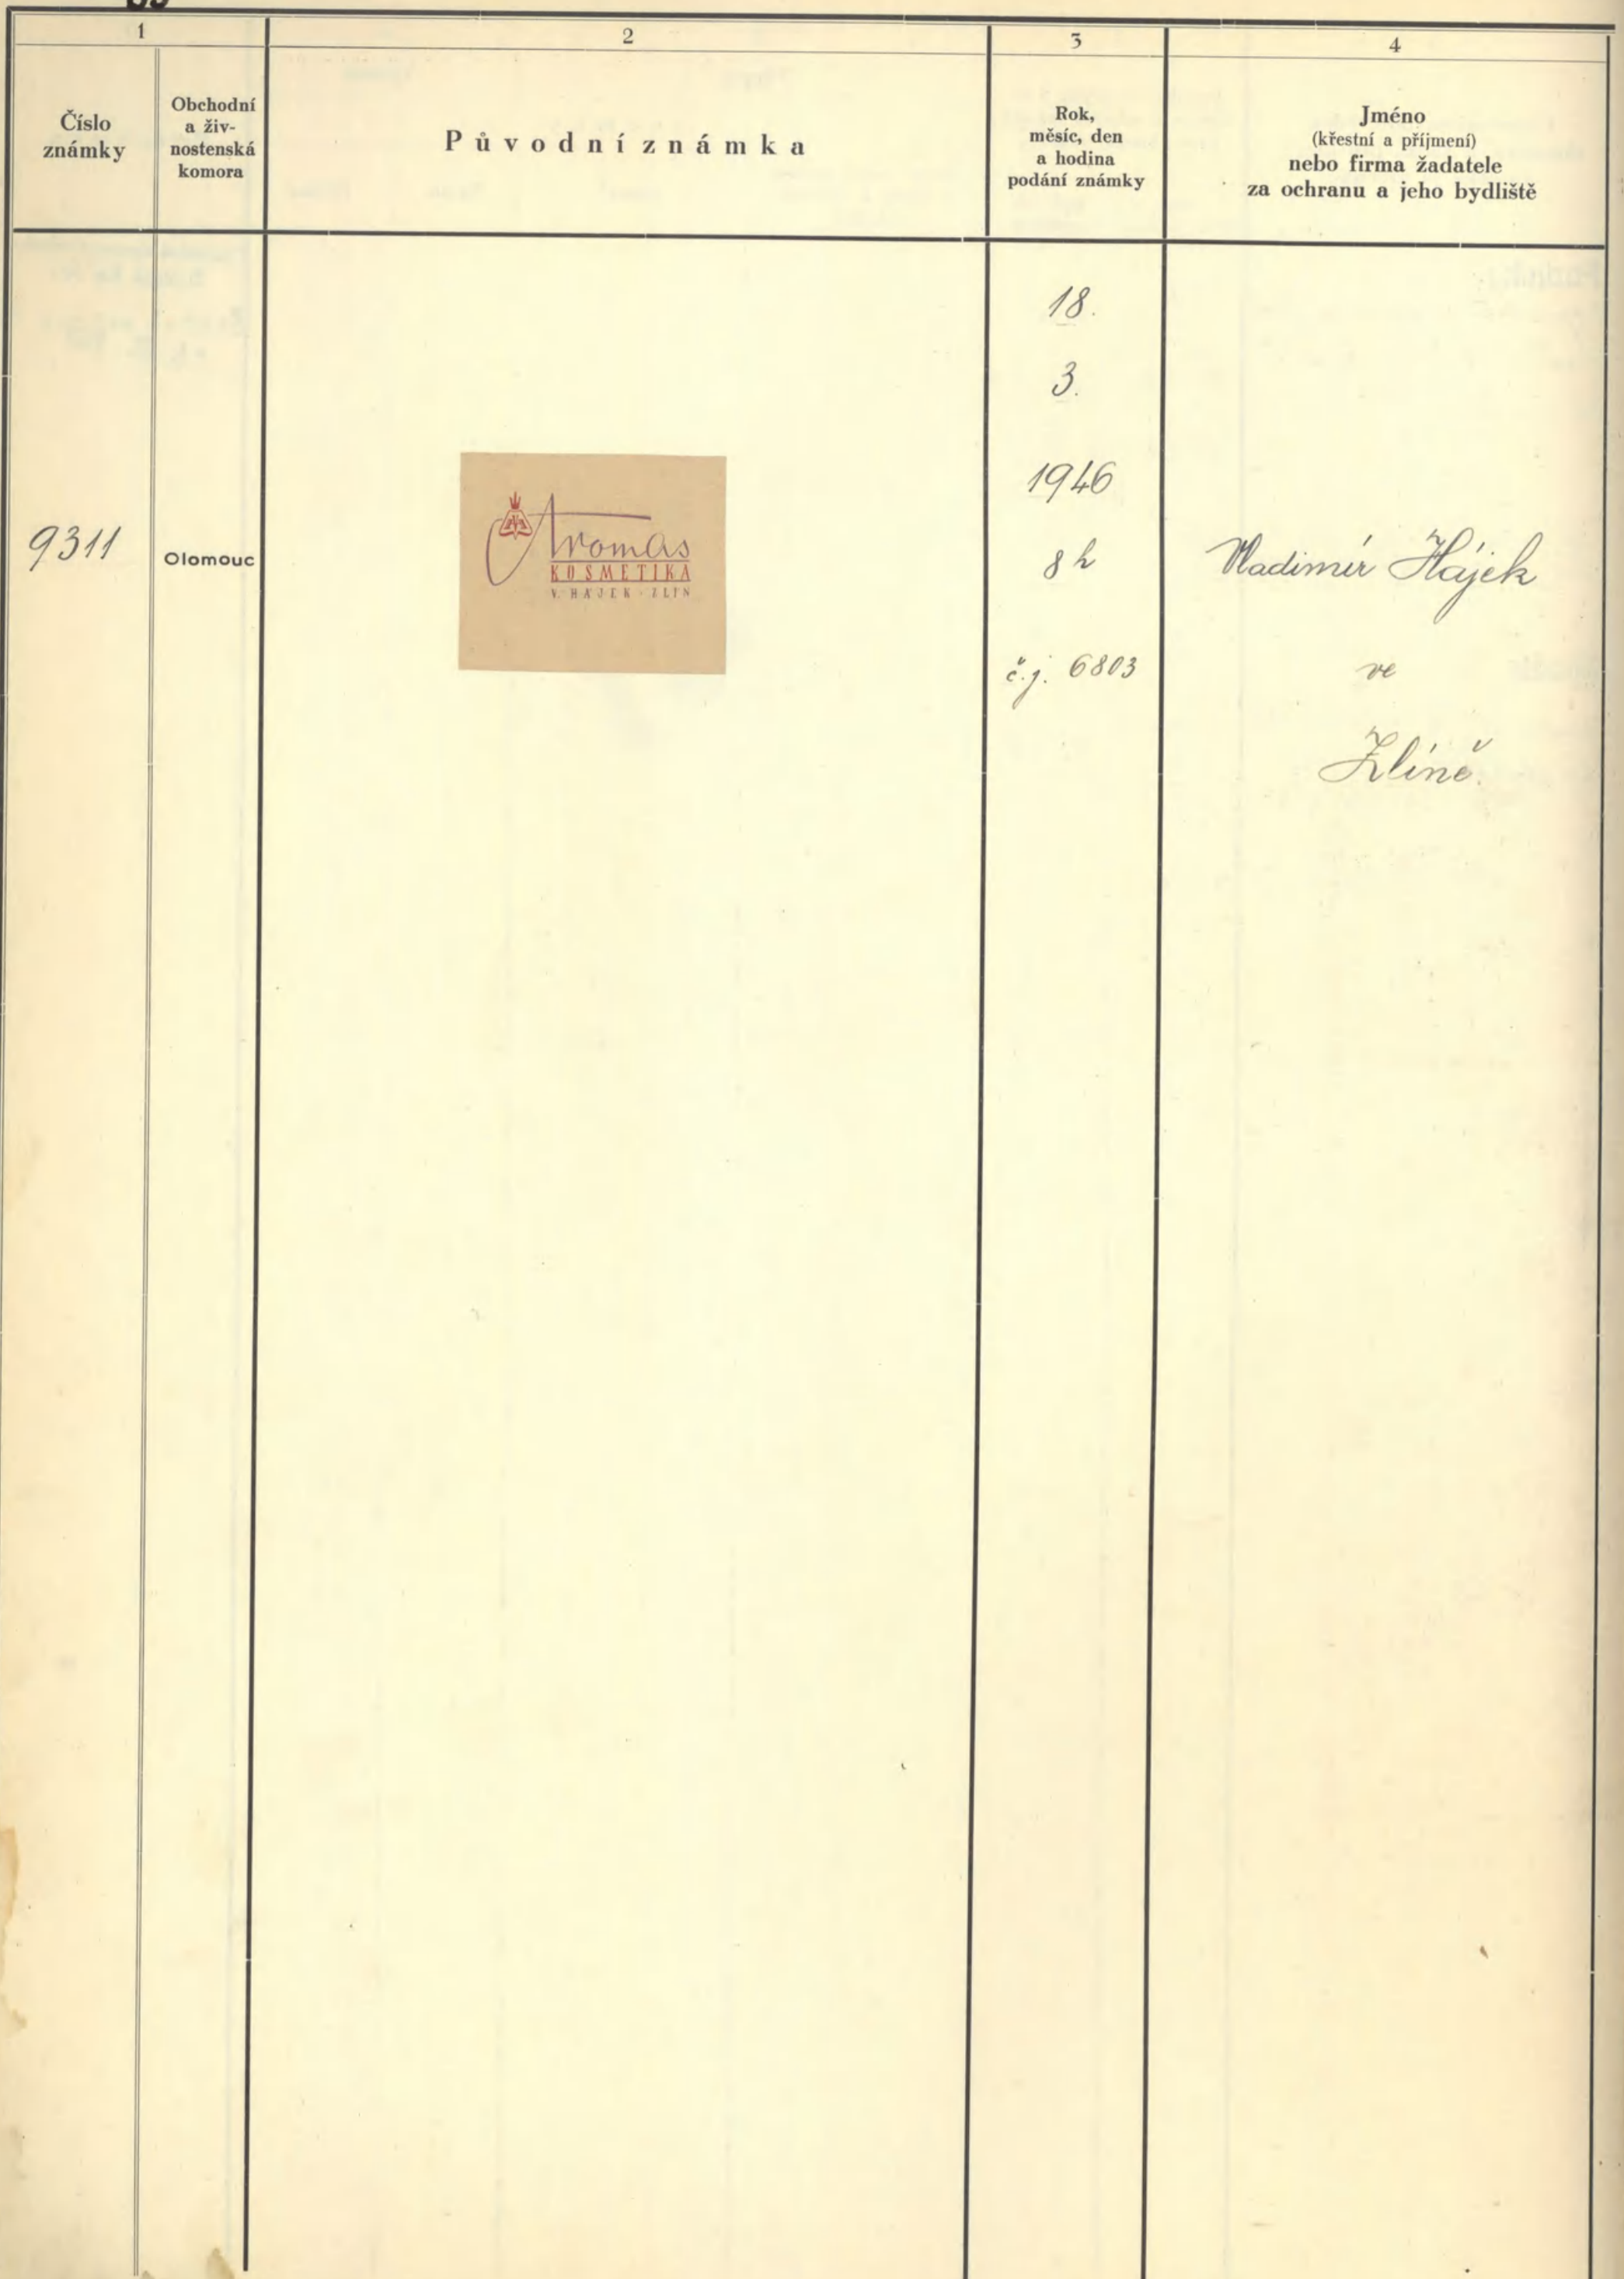 1
2
3
4
Číslo
známky
Obchodní
a živ-
nostenská
komora
Původní známka
Rok,
měsíc, den
a hodina
podání známky
Jméno
(křestní a příjmení)
nebo firma žadatele
za ochranu a jeho bydliště
9311
Olomouc
Aromas
KOSMETIKA
V. HÁJEK - ZLÍN
18.
3.
1946
8 h
č.j. 6803
Vladimír Hájek
ve
Zlíně.